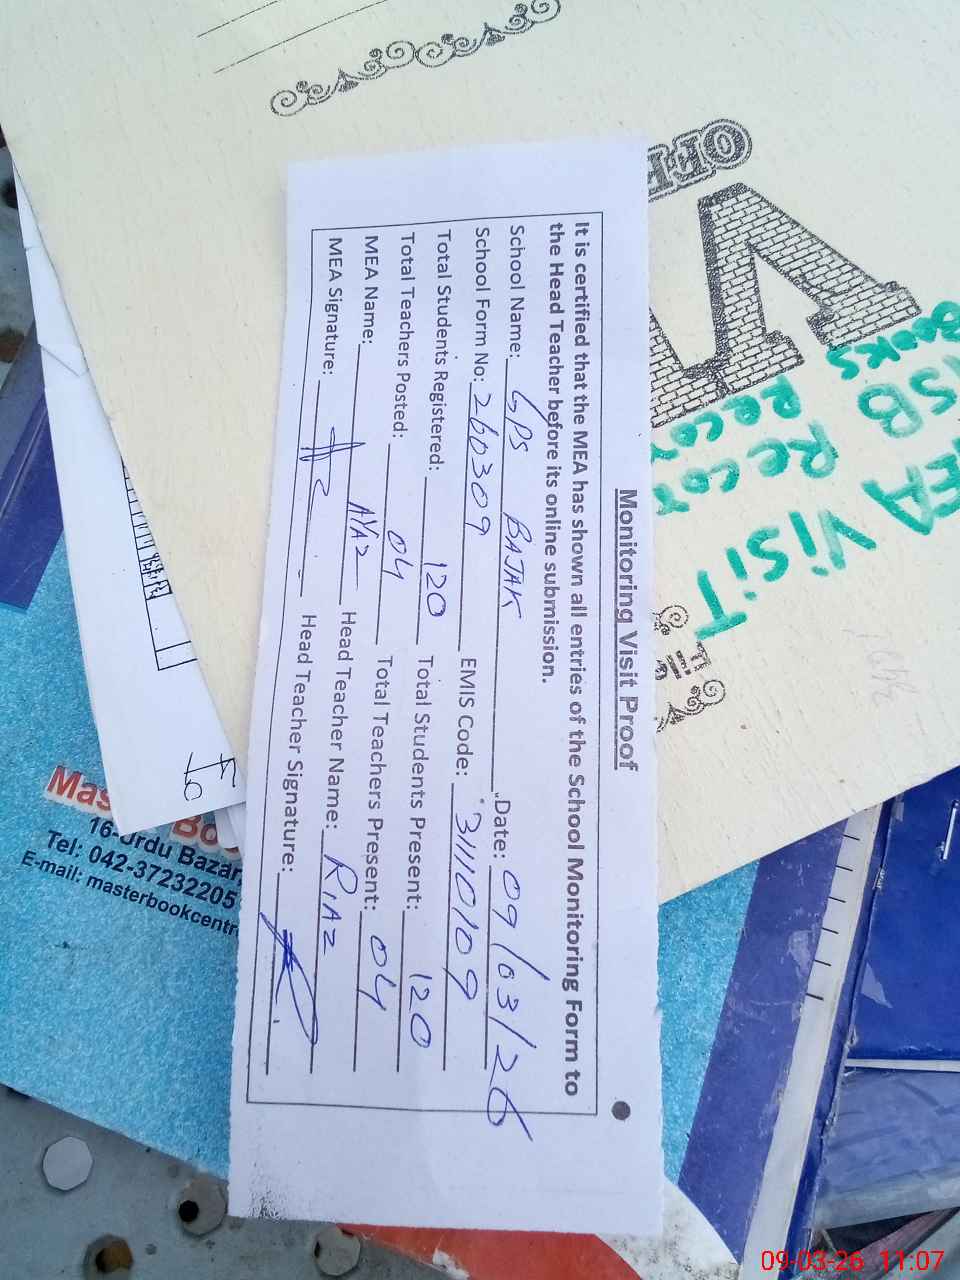 Monitoring Visit Proof
It is certified that the MEA has shown all entries of the School Monitoring Form to
the Head Teacher before its online submission.
School Name: GPS BAJAK Date: 09/03/26
School Form No: 260309 EMIS Code: 31110109
Total Students Registered: 120 Total Students Present: 120
Total Teachers Posted: 04 Total Teachers Present: 04
MEA Name: AYAZ Head Teacher Name: RIAZ
MEA Signature: Head Teacher Signature:
OFF
File
VISIT
RECOR
NSB RECOR
BOOKS
16-Urdu Bazar,
Tel: 042-37232205
E-mail: masterbookcentr
09-03-26 11:07